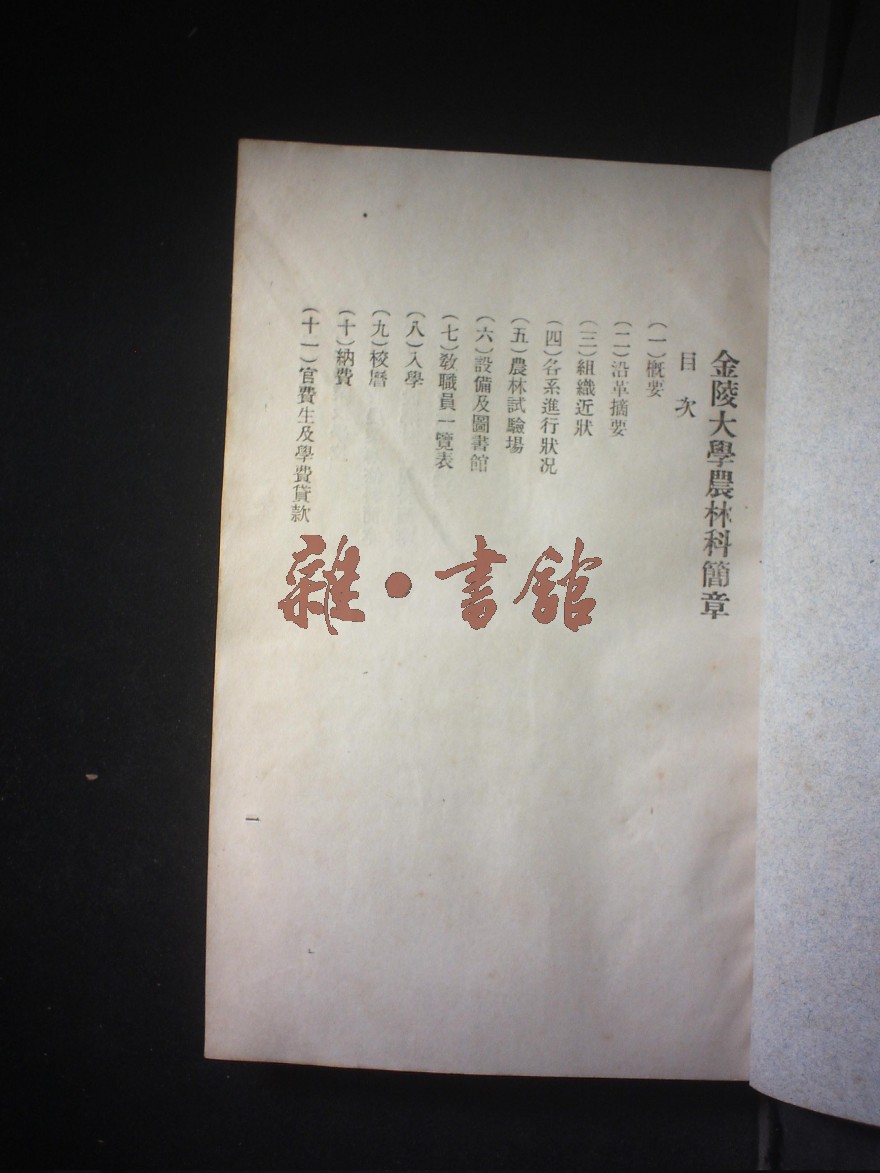 金陵大學農林科簡章
目次
(一)概要
(二)沿革摘要
(三)組織近狀
(四)各系進行狀况
(五)農林試驗場
(六)設備及圖書館
(七)敎職員一覽表
(八)入學
(九)校曆
(十)納費
(十一)官費生及學費貸款
一
雜·書館